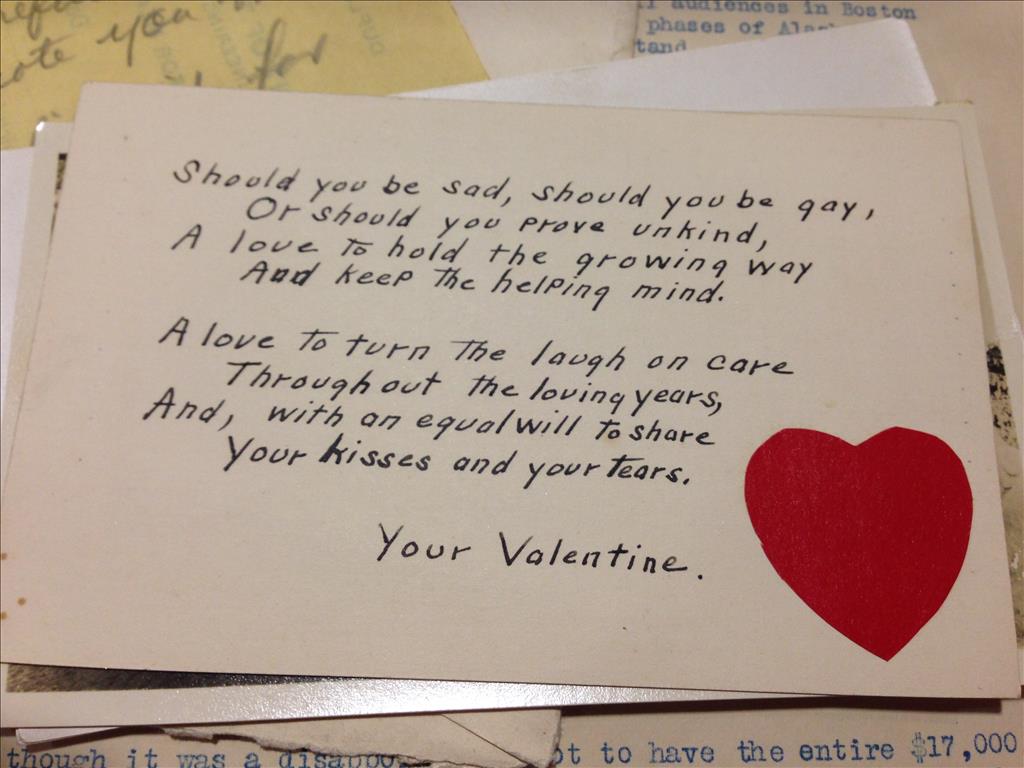 ote you
for
audiences in Boston
phases of
tand
Should you be sad, should you be gay,
Or should you prove unkind,
A love to hold the growing way
And keep the helping mind.
A love to turn the laugh on care
Throughout the loving years,
And, with an equal will to share
Your kisses and your tears.
Your Valentine.
though it was a ot to have the entire $17,000